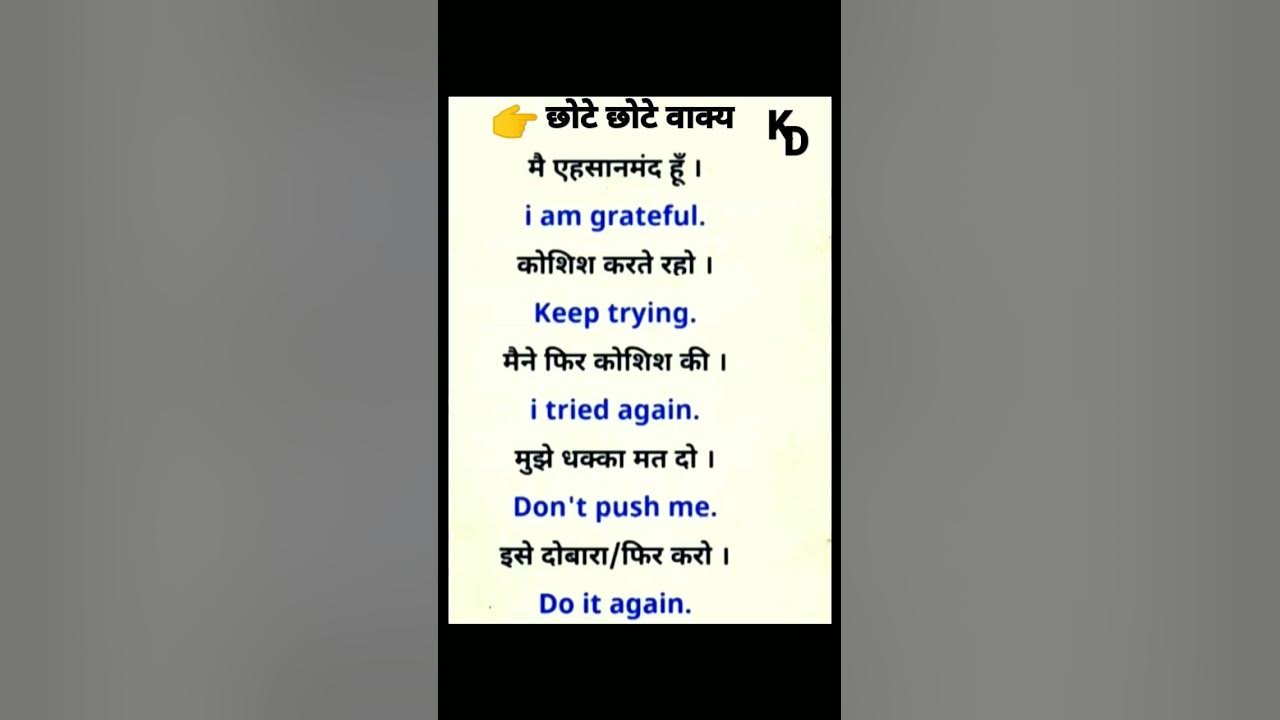 👉 छोटे छोटे वाक्य
KD
मै एहसानमंद हूँ ।
i am grateful.
कोशिश करते रहो ।
Keep trying.
मैने फिर कोशिश की ।
i tried again.
मुझे धक्का मत दो ।
Don't push me.
इसे दोबारा/फिर करो ।
Do it again.